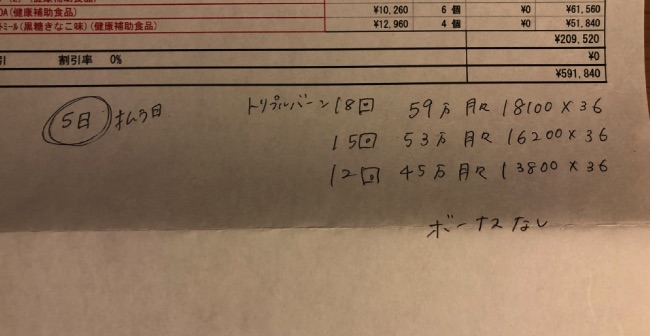 OA(健康補助食品) ¥10,260 6 個 ¥0 ¥61,560
ﾄﾐｰﾙ(黒糖きなこ味)(健康補助食品) ¥12,960 4 個 ¥0 ¥51,840
¥209,520
引 割引率 0% ¥0
¥591,840
5日 払う日 トリプルバーン 18回 59万 月々 18100×36
15回 53万 月々 16200×36
12回 45万 月々 13800×36
ボーナスなし